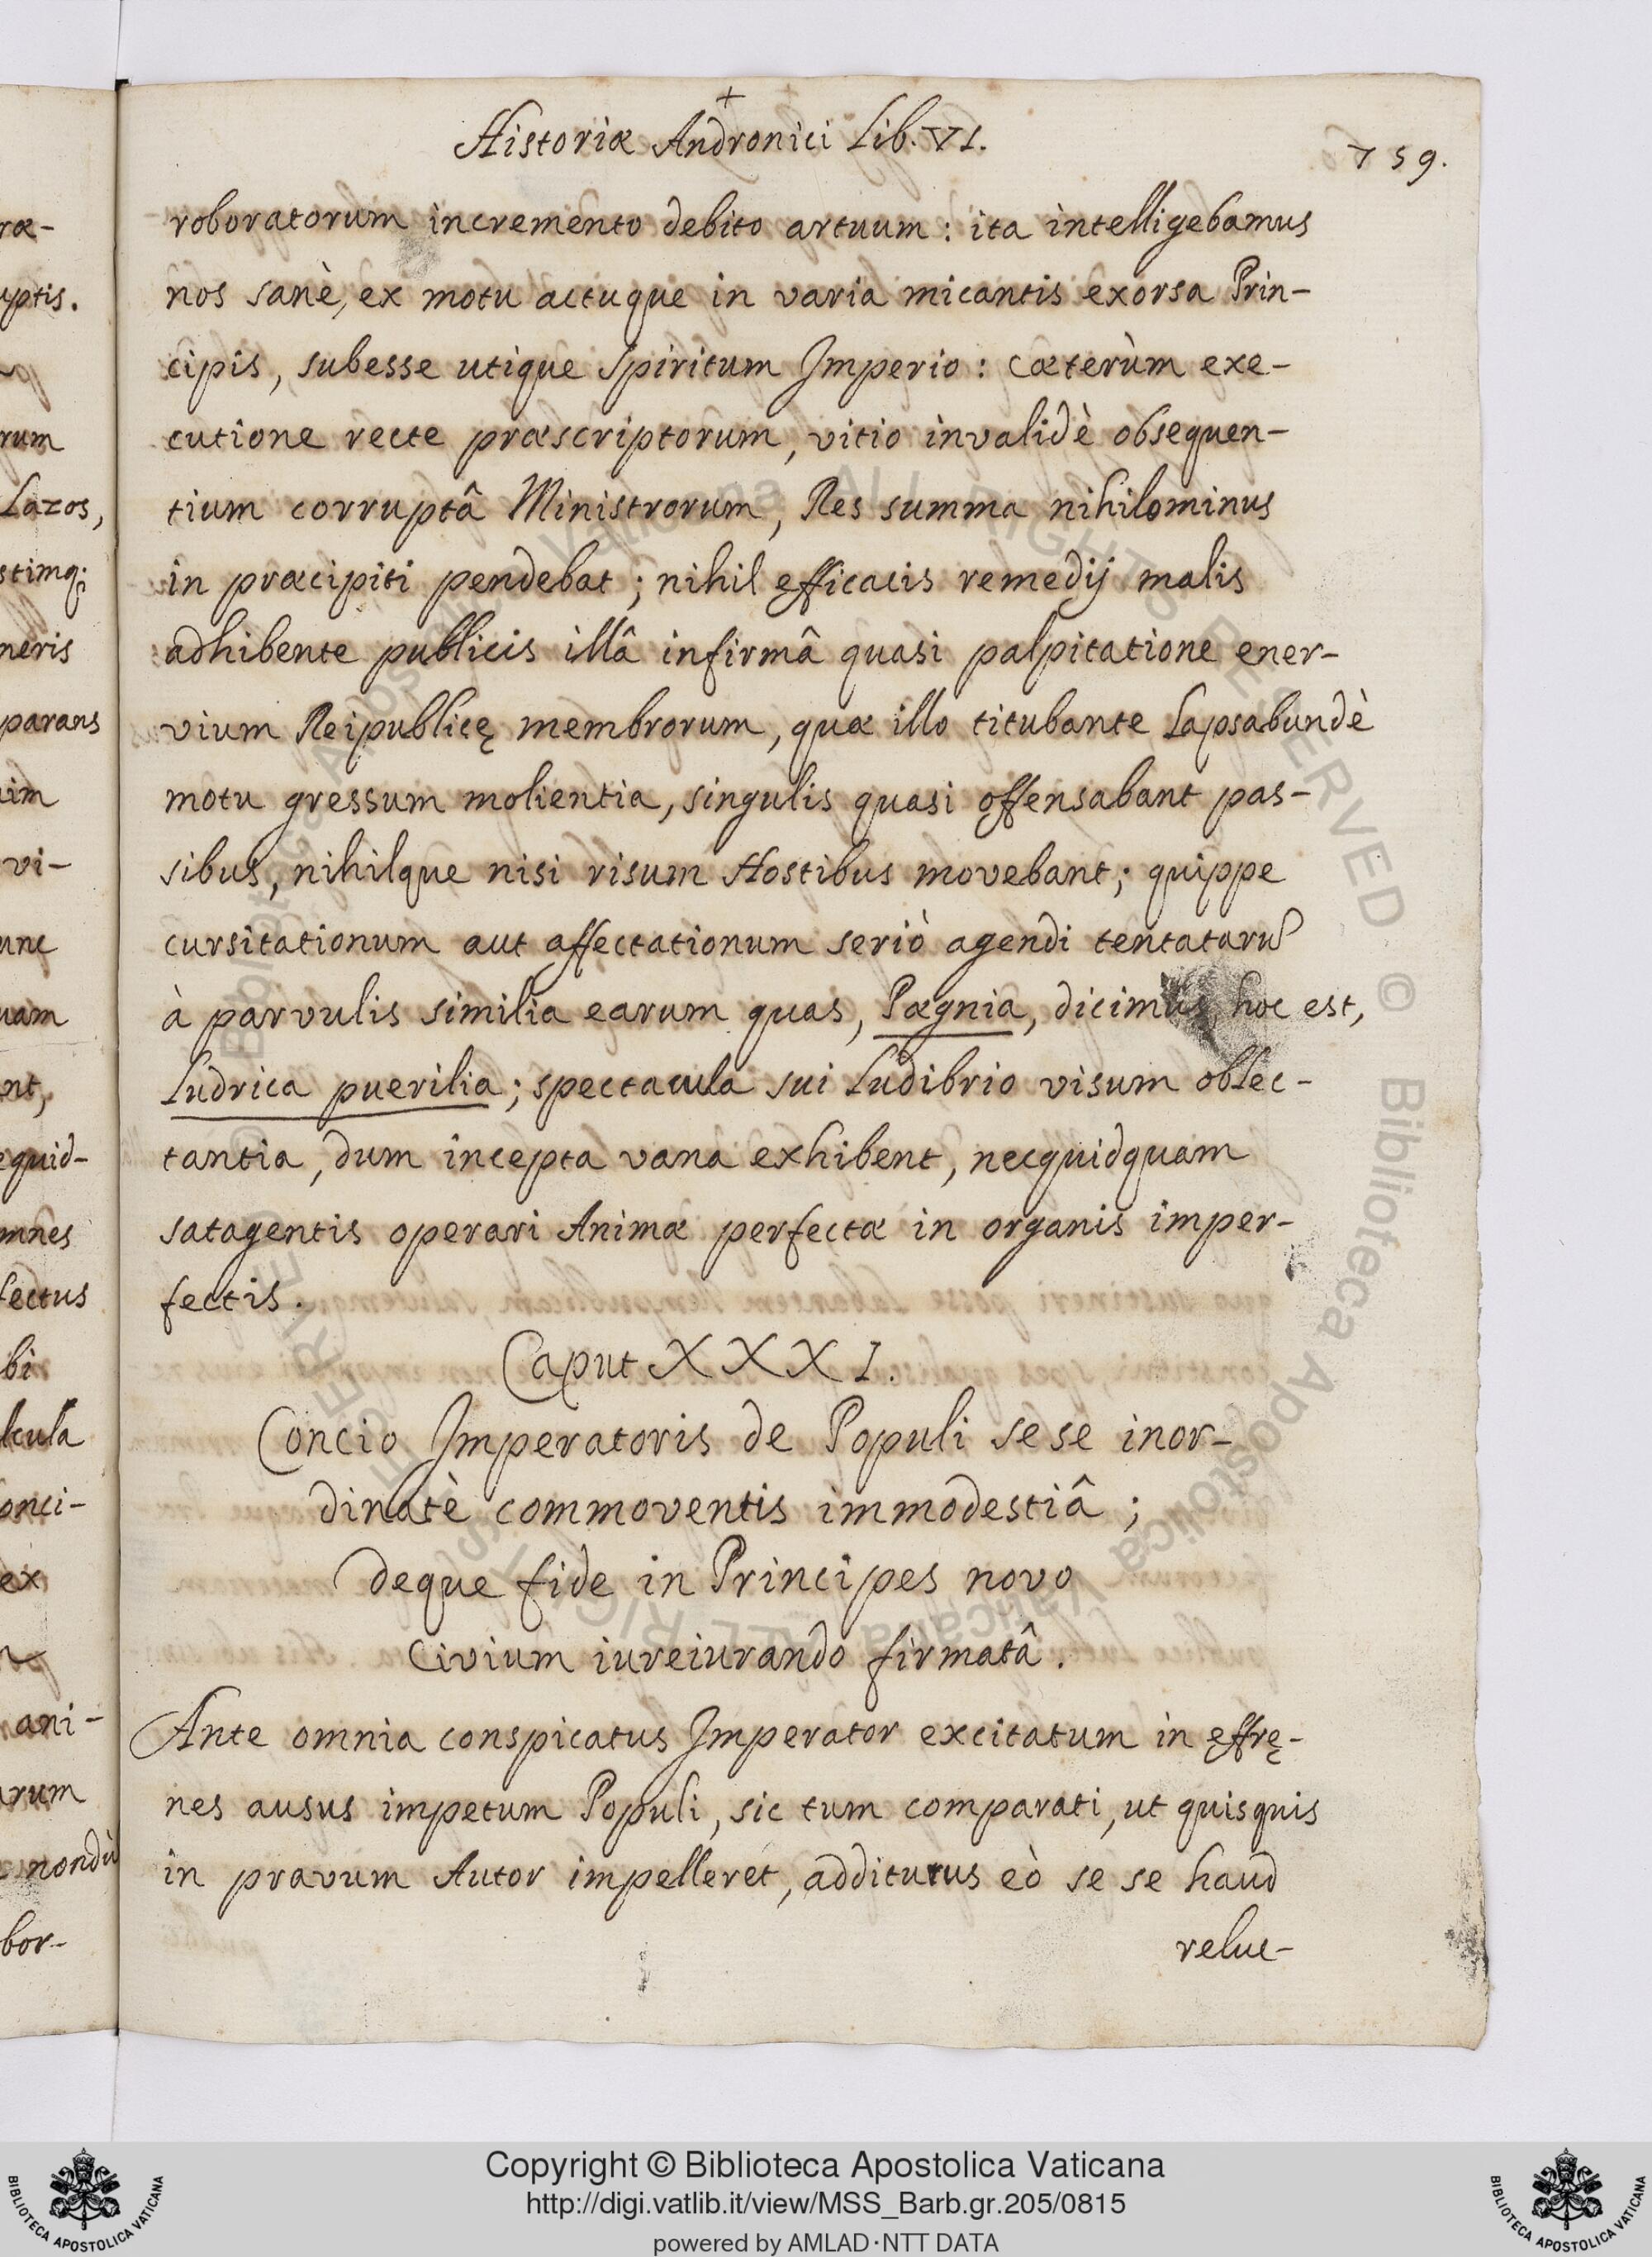 +
Historiæ Andronici Lib. VI.
759.
roboratorum incremento debito artuum: ita intelligebamus
nos sanè, ex motu actuque in varia micantis exorsa Prin-
cipis, subesse utique Spiritum Imperio: cæterùm exe-
cutione recte præscriptorum, vitio invalidè obsequen-
tium corruptâ Ministrorum, Res summa nihilominus
in præcipiti pendebat; nihil efficacis remedij malis
adhibente publicis illâ infirmâ quasi palpitatione ener-
vium Reipublicę membrorum, quæ illo titubante Lapsabundè
motu gressum molientia, singulis quasi offensabant pas-
sibus, nihilque nisi risum Hostibus movebant; quippe
cursitationum aut affectationum seriò agendi tentatarũ
à parvulis similia earum quas, Pægnia, dicimus, hoc est,
Ludrica puerilia; spectacula sui Ludibrio visum oblec-
tantia, dum incepta vana exhibent, necquidquam
satagentis operari Animæ perfectæ in organis imper-
fectis.
Caput XXXI.
Concio Imperatoris de Populi sese inor-
dinatè commoventis immodestiâ;
deque fide in Principes novo
civium iureiurando firmatâ.
Ante omnia conspicatus Imperator excitatum in effrę-
nes ausus impetum Populi, sic tum comparati, ut quisquis
in pravum Autor impelleret, additurus eò se se haud
reluc-
ræ-
uptis.
rum
Lazos,
stimq;
neris
parans
uim
vi-
unc
uam
nt,
equid-
mnes
fectus
bi
lcula
onci-
ex
ani-
arum
nondũ
bor-
Copyright © Biblioteca Apostolica Vaticana
http://digi.vatlib.it/view/MSS_Barb.gr.205/0815
powered by AMLAD·NTT DATA
BIBLIOTECA APOSTOLICA VATICANA
BIBLIOTECA APOSTOLICA VATICANA